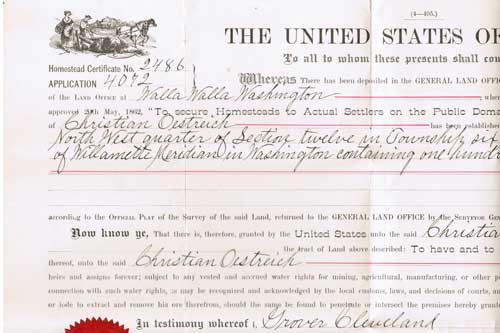 (4—405.)
THE UNITED STATES OF
To all to whom these presents shall com
Homestead Certificate No. 2486
APPLICATION 4072
Whereas There has been deposited in the GENERAL LAND OFFICE
of the LAND OFFICE at Walla Walla Washington, wher
approved 20th May, 1862, "To secure Homesteads to Actual Settlers on the Public Doma
of Christian Oestreich has been established
North West quarter of Section twelve in Township six
of Willamette Meridian in Washington containing one hundr
according to the OFFICIAL PLAT of the Survey of the said Land, returned to the GENERAL LAND OFFICE by the SURVEYOR GEN
Now know ye, That there is, therefore, granted by the United States unto the said Christia
the tract of Land above described: To have to
thereof, unto the said Christian Oestreich
heirs and assigns forever; subject to any vested and accrued water rights for mining, agricultural, manufacturing, or other p
connection with such water rights, as may be recognized and acknowledged by the local customs, laws, and decisions of courts, an
or lode to extract and remove his ore therefrom, should the same be found to penetrate or intersect the premises hereby grante
In testimony whereof I, Grover Cleveland